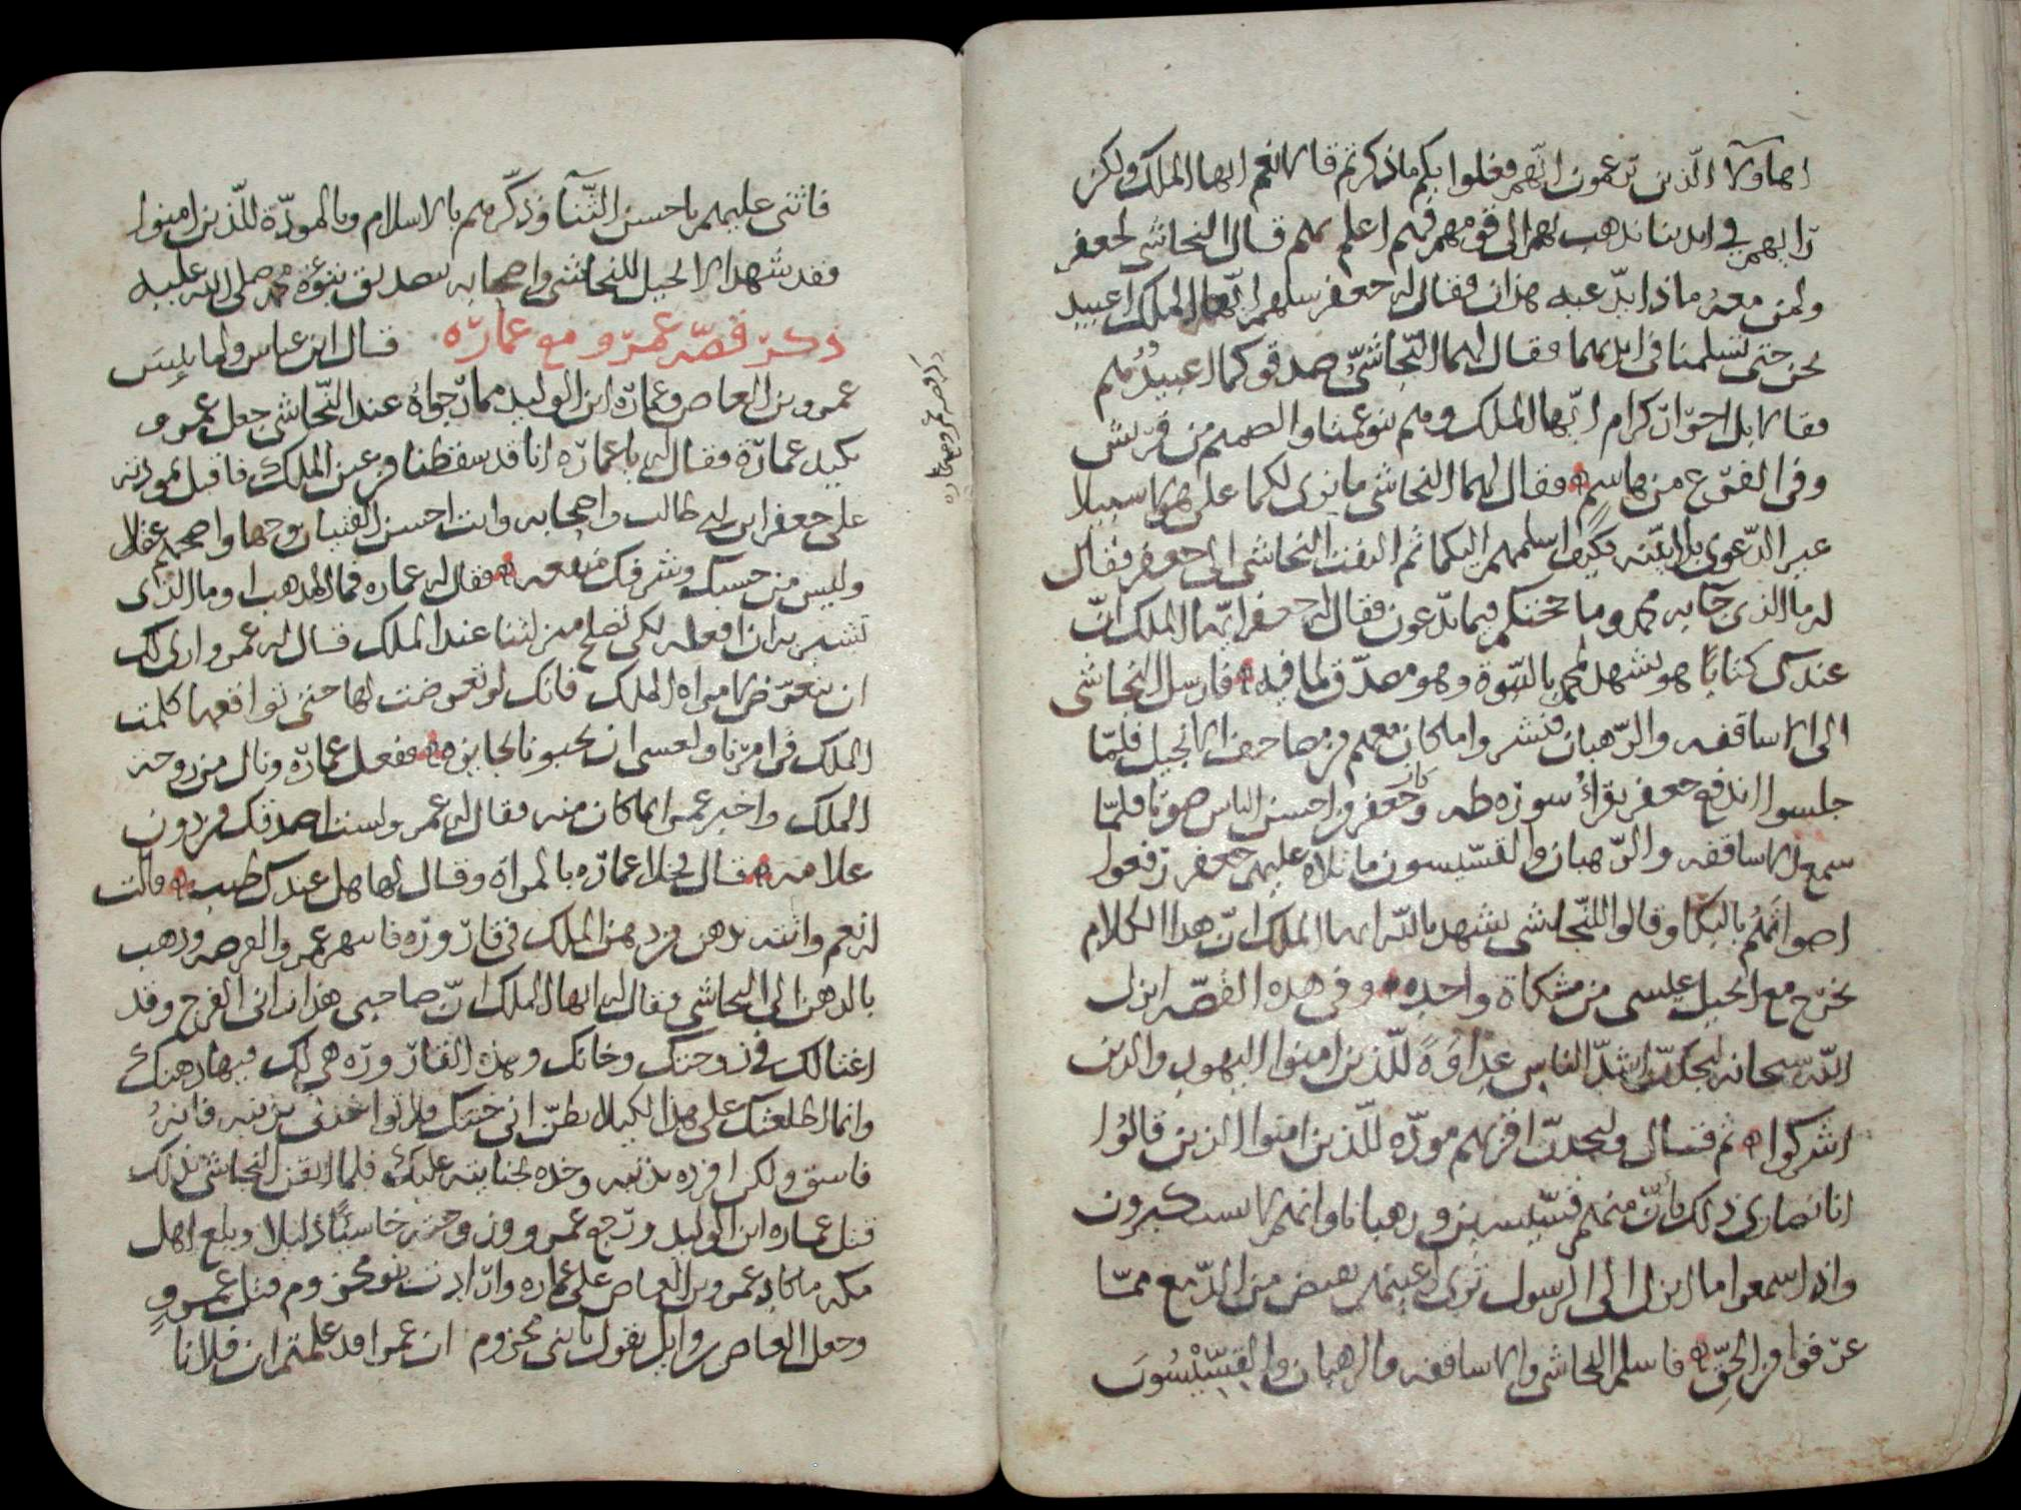 اهاولآ الّذين تزعمون انّهم فعلوا بكم ماذكرتم قالا نعم ايها الملك ولكن
رايهم في ايدينا نذهب بهم الى قومهم فهم اعلم بهم قال النجاشي لجعفر
ولمن معه ماذا يدّعيه هذان فقال له جعفر سلهم ايّها الملك اعبيد
نحن حتى تسلمنا في ايديهما فقال لهما النّجاشيّ صدقوكما اعبيدٌ هُم
فقالا بل احرار كرام ايّها الملك وهم بنو عمنا والصميم من قريش
وفي الفرع من هاشمٍ فقال لهما النجاشي ما نرى لكما على هولا سبيلا
غير الدّعوى بلا بيّنه فكيف اسلمهم اليكما ثم التفت النجاشي الى جعفر فقال
له ما الذي جآ به محمد وما حجتكم فيما تدّعون فقال له جعفر ايّها الملك انّ
عندك كتابًا هو يشهد لمحمد بالنبّوة وهو مصدّق لما فيه فارسل النجاشى
الى الاساقفه والرّهبان فنشروا ما كان معهم من مصاحف الانجيل فلمّا
جلسوا اندفع جعفر يقراُ سورة طه وكان جعفر من احسن الناس صوتا فلمّا
سمع الاساقفه والرّهبان والقسّيسون ما تلاه عليهم جعفر رفعوا
اصواتهُم بالبكا وقالوا للنّجاشي نشهد بالله ايها الملك انّ هذا الكلام
يخرج مع انجيل عيسى من مشكاة واحده وفي هذه القصّه انزل
الله سبحانه لتجدنّ اشدّ الناس عداوَةً للّذين امنوا اليهود والذين
اشركوا ثم قال ولتجدنّ اقربهم مودّه للّذين امنوا الذين قالوُا
انا نصارى ذلك بأنّ منهم قسّيسين ورهبانا وانهم لا يستكبرون
واذا سمعوا ما انزل الى الرسول ترى اعينهم تفيض من الدّمع ممّا
عرفوا من الحقّ فاسلم النجاشي والاساقفه والرهبان والقِسّيْسُونَ
فاثنى عليهم باحسن الثّنآ وذكّرهم بالاسلام وبالمودّة للّذين امنوا
فقد شهد الانجيل للنجاشي واصحابه بتصديق نبوّة محمد صلى الله عليه
ذكر قصّه عمرو مع عمارّه قال ابن عباس ولما يئِسَ
عمرو بن العاص وعمارّه ابن الوليد ممارجواهُ عند النّجاشي جعل عمرو
يكيد عمارّة فقال له يا عمارّه انا قد سقطنا من عين الملك فاقبل بمودته
على جعفر ابن ابي طالب واصحابه وانت احسن الفتيان وجها واصحهم عقلا
وليس من حسبك وشرفك منفعه فقال له عماره فما المذهب او ما الذى
تشير به ان افعله لكي تصلح منزلتنا عند الملك قال له عمرو ارى لك
ان تتعرّض لامراه الملك فانك لو تعرضت لها حتى تواقعها كلمت
الملك في امرنا ولعسى ان يحبونا لجايزه ففعل عمارّه ونال من زوجة
الملك واخبر عمرا بما كان منه فقال له عمرو لست اصدقك من دون
علامه قال فخلا عمارّه بالمراة وقال لها هل عندك طيب قالت
له نعم واتته بدهن من دهن الملك في قارّورّه فانتهز عمرو الفرصه وذهب
بالدهن الى النجاشي وقال له ايها الملك انّ صاحبي هذا زانى الفرج وقد
اغتالك في زوجتك وخانك وهذه القارّورّه هي لك فيها دهنك
وانما اطلعتك على هذا لكيلا تظنّ انى خنتك ولا تواخذني بذنبه فانهُ
فاسق ولكن افرده بذنبه وخذه بخيانته عليك فلما ايقن النجاشى بذلك
قتل عماره ابن الوليد ورجع عمرو وزوجته خاسئًا ذليلا وبلغ اهل
مكه ما كاد عمرو بن العاص على عماره وارّادت بنو مخزوم قتل عمروٍ
وجعل العاص بن وايل يقول يا بنى مخزوم ان عمرا قد علمتم ان فلانا
ذكر قصه عمرو مع عماره